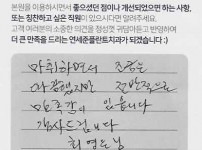 본원을 이용하시면서 좋으셨던 점이나 개선되었으면 하는 사항,
또는 칭찬하고 싶은 직원이 있으시다면 알려주세요.
고객 여러분의 소중한 의견을 정성껏 귀담아듣고 반영하여
더 큰 만족을 드리는 연세준플란트치과가 되겠습니다 :)
마취하면서 조금은
따끔했지만 전반적으로
만족감이 있습니다
감사드립니다